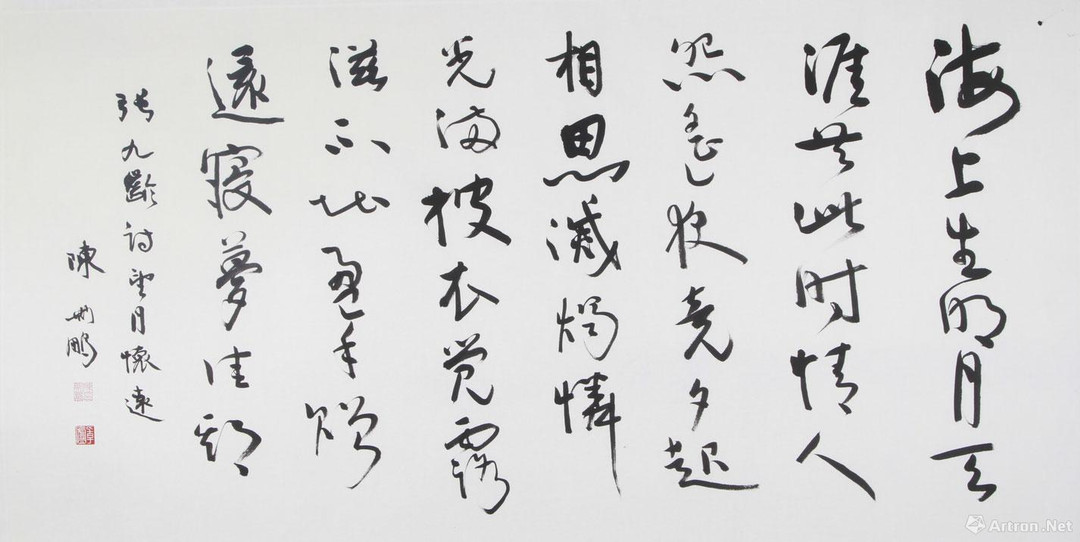 海上生明月天
涯共此时情人
怨遥夜竟夕起
相思滅燭憐
光满披衣觉露
滋不堪盈手赠
還寢夢佳期
张九齡诗望月懷遠
陳鵬
Artron.Net